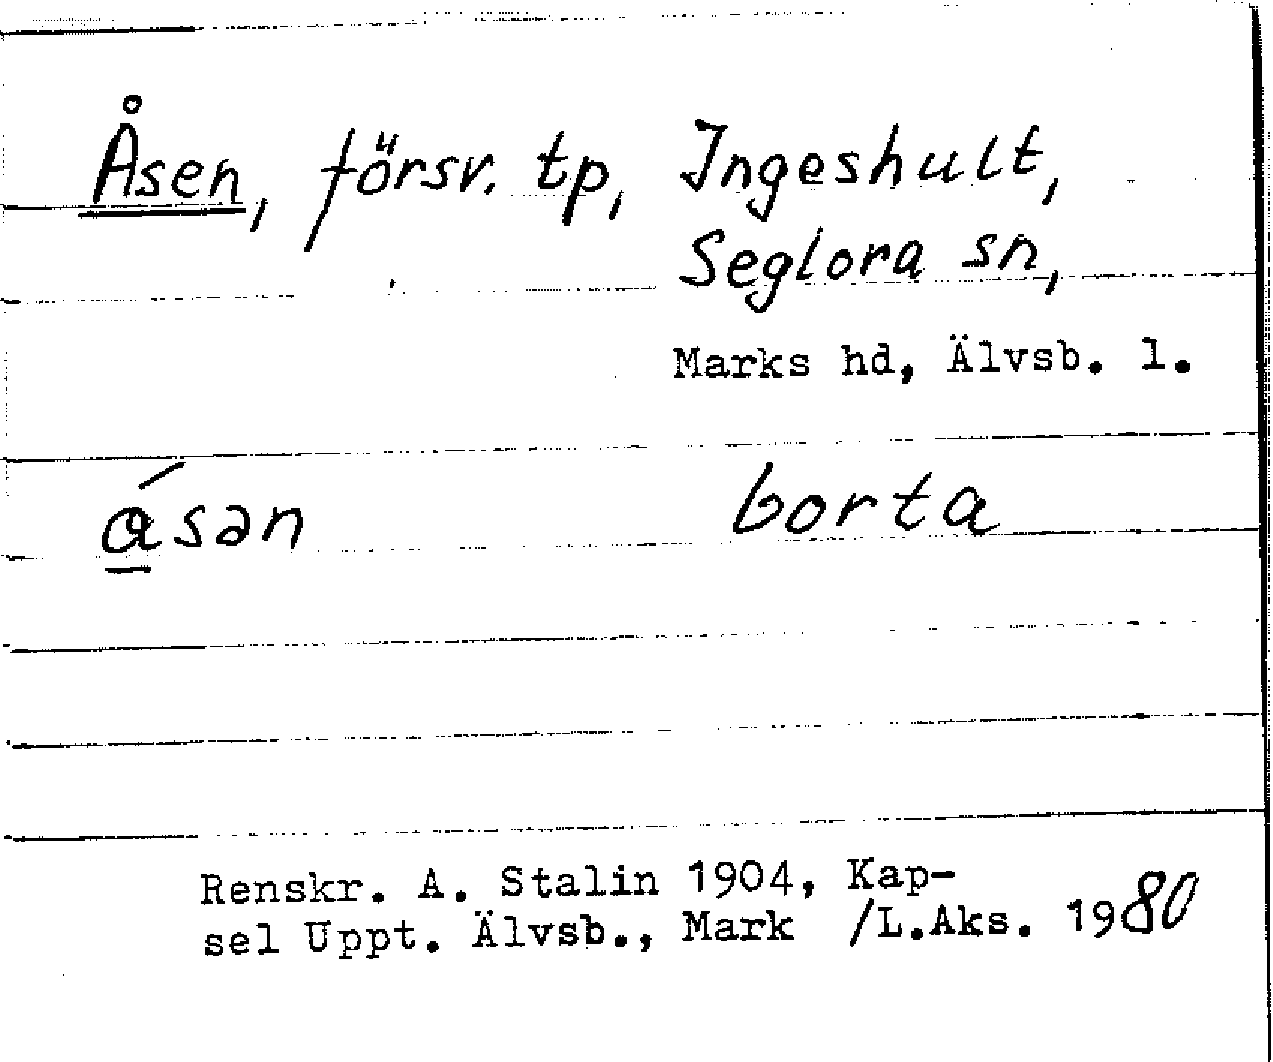 Åsen, försv. tp, Ingeshult,
Seglora sn,
Marks hd, Älvsb. l.
á̲sən borta
Renskr. A. Stalin 1904, Kap-
sel Uppt. Älvsb., Mark /L.Aks. 1980